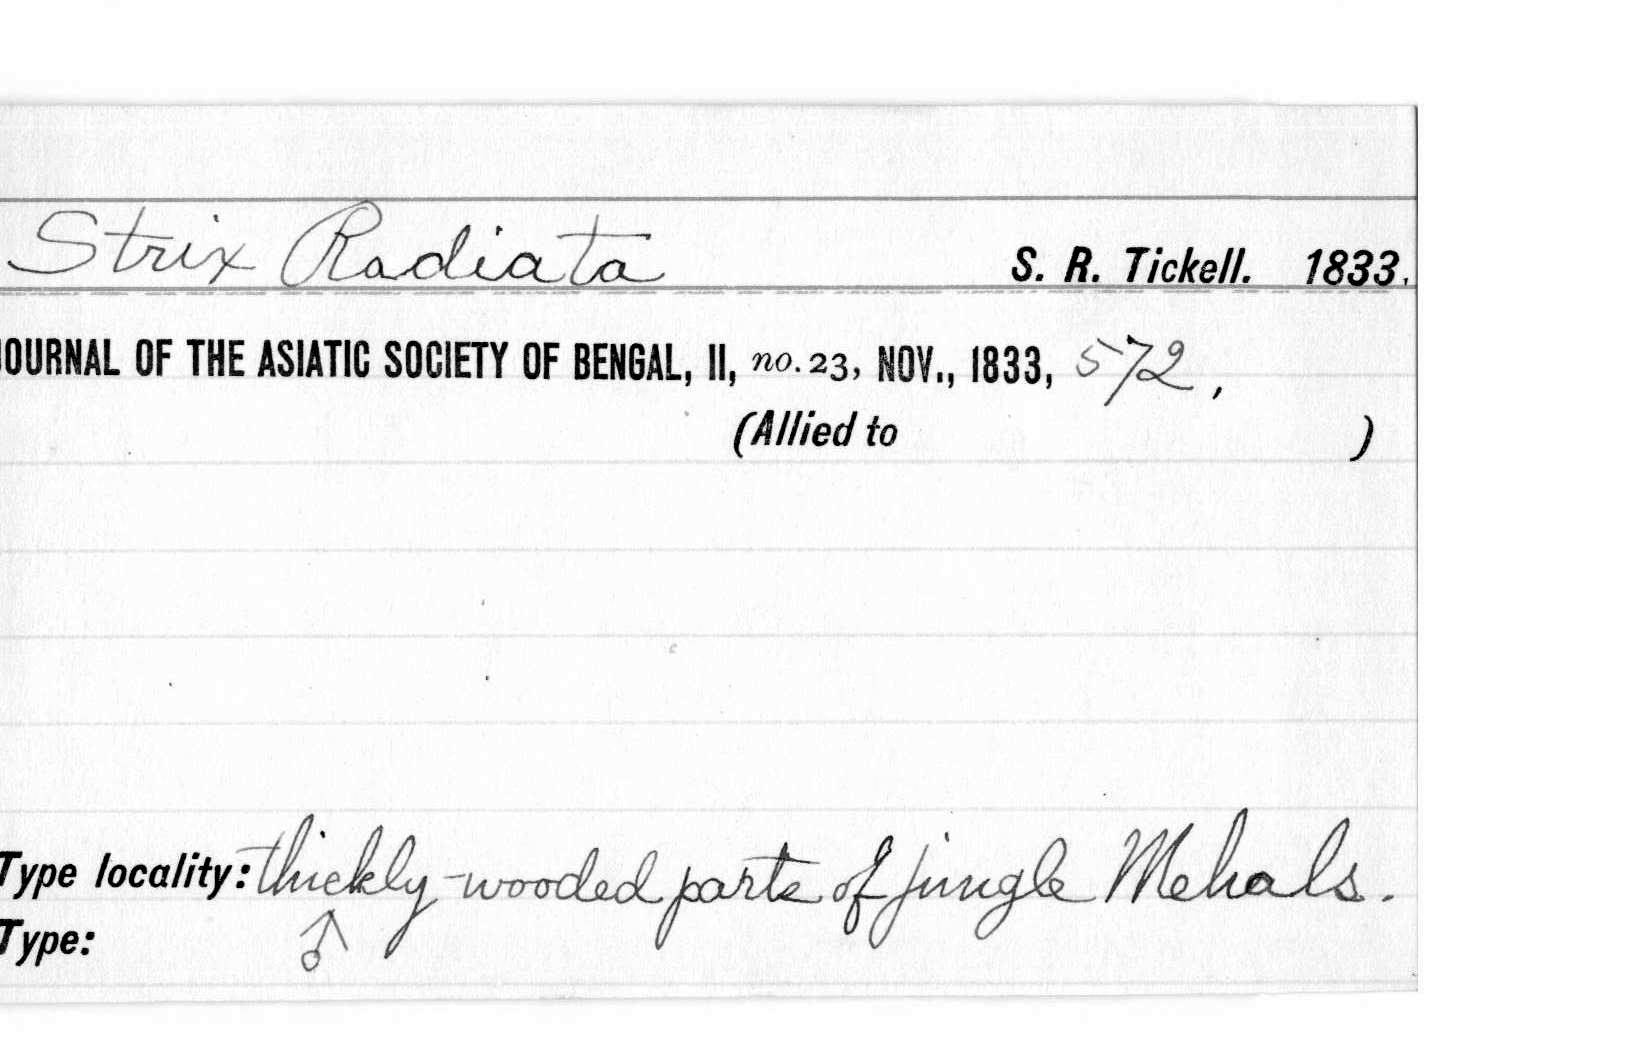 Strix Radiata S. R. Tickell. 1833.
JOURNAL OF THE ASIATIC SOCIETY OF BENGAL, II, no. 23, NOV., 1833, 572,
(Allied to )
Type locality: thickly-wooded parts of jungle Mehals.
Type: ♂